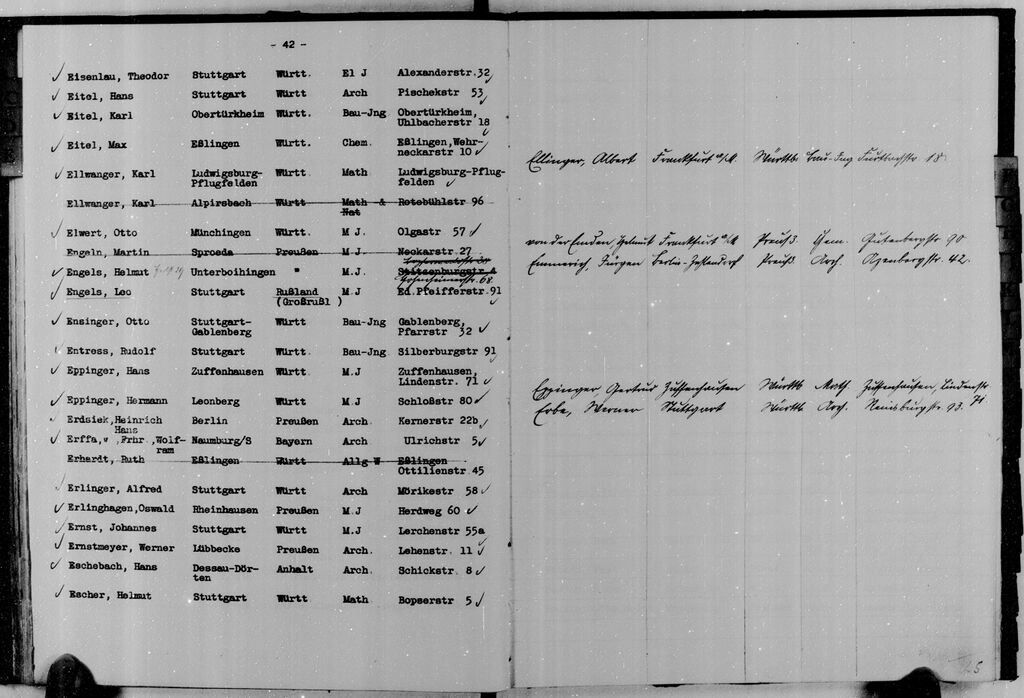 - 42 -
Eisenlau, Theodor Stuttgart Württ. El J Alexanderstr. 32
Eitel, Hans Stuttgart Württ Arch Pischekstr 53
Eitel, Karl Obertürkheim Württ. Bau-Jng Obertürkheim,
Uhlbacherstr 18
Eitel, Max Eßlingen Württ. Chem. Eßlingen, Wehr-
neckarstr 10
Ellwanger, Karl Ludwigsburg- Württ. Math Ludwigsburg-Pflug-
Pflugfelden felden
Ellwanger, Karl Alpirsbach Württ Math & Rotebühlstr 96
Nat
Elwert, Otto Münchingen Württ M J. Olgastr 57
Engeln, Martin Sproeda Preußen M J. Neckarstr. 27
Engels, Helmut Unterboihingen " M.J. Stitzenburgstr.
Hohenheimerstr. 68
Engels, Leo Stuttgart Rußland M J Ed. Pfeifferstr. 91
(Großrußl )
Ensinger, Otto Stuttgart- Württ Bau-Jng Gablenberg,
Gablenberg Pfarrstr 32
Entress, Rudolf Stuttgart Württ. Bau-Jng Silberburgstr 91
Eppinger, Hans Zuffenhausen Württ. M.J Zuffenhausen,
Lindenstr. 71
Eppinger, Hermann Leonberg Württ M J Schloßstr 80
Erdsiek, Heinrich Berlin Preußen Arch. Kernerstr 22b
Hans
Erffa, v ,Frhr ,Wolf- Naumburg/S Bayern Arch Ulrichstr 5
ram
Erhardt, Ruth Eßlingen Württ Allg W Eßlingen
Ottilienstr 45
Erlinger, Alfred Stuttgart Württ Arch Mörikestr 58
Erlinghagen,Oswald Rheinhausen Preußen M.J Herdweg 60
Ernst, Johannes Stuttgart Württ M.J Lerchenstr 55a
Ernstmeyer, Werner Lübbecke Preußen Arch. Lehenstr. 11
Eschebach, Hans Dessau-Dör- Anhalt Arch. Schickstr 8
ten
Escher, Helmut Stuttgart Württ Math Bopserstr 5
Ellinger, Albert Frankfurt a/M. Württb Bau-Ing Furtbachstr 18
von der Emden, Helmut Frankfurt a/M Preuß. Chem. Gutenbergstr 90
Emmerich, Jürgen Berlin-Zehlendorf Preuß. Arch. Azenbergstr. 42.
Eppinger Gertrud Zuffenhausen Württb Math. Zuffenhausen, Lindenstr
71.
Erbe, Werner Stuttgart Württb Arch. Reinsburgstr. 93.